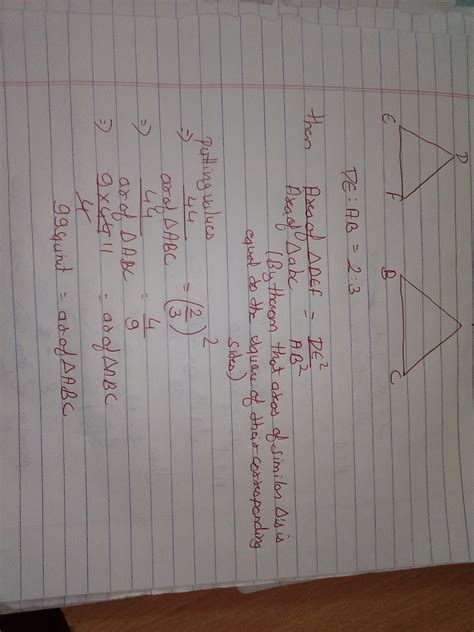 D
E F
B C
DE : AB = 2 : 3
then Area of ΔDEF / Area of Δabc = DE² / AB²
(By theorem that areas of similar Δ's is
equal to the square of their corresponding
sides)
Putting values
⇒ 44 / ar of ΔABC = (2/3)²
⇒ 44 / ar of ΔABC = 4 / 9
⇒ 9 × 44 11 / 4 = ar of ΔABC
99 sq unit = ar of ΔABC